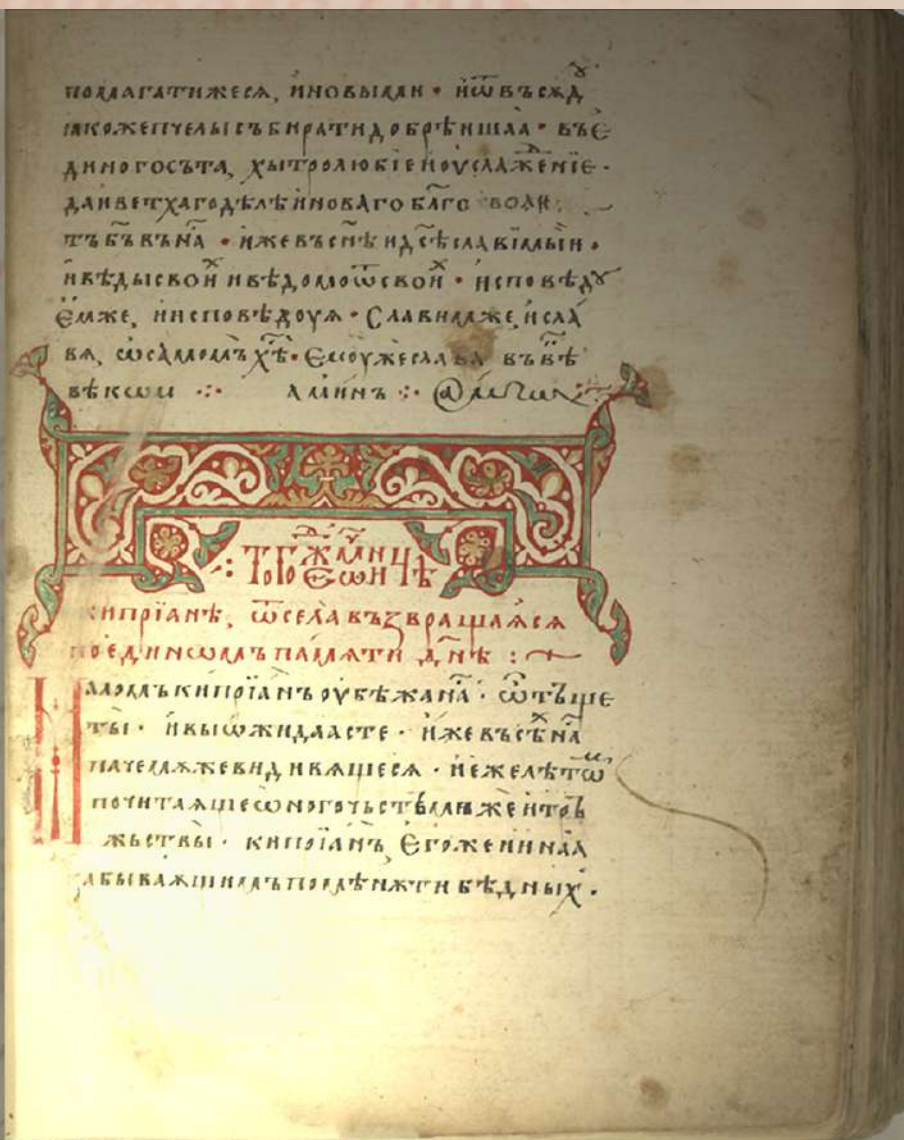 помагатижеся, инобыми · иѿвъсѫдꙋ
ꙗкожепчелысъбиратидобрѣишаа · въє
диногосъта, хытролюбїеиоуслажⷣенїе ·
даиветхагодѣлѣиновагобл҃го воли
тъбг҃ъвъна · ижевъсн҃ѣидс҃ѣславїмыи ·
ивѣдысвоиⷯиведомоѿсвоиⷯ · исповѣдꙋ
ємже, иисповѣдоуѧ · Славимже, исла
вѧ, ѡсамомъх҃ѣ · Ємоужеслава въвѣ
вѣкѡм ⁘ аминъ ⁘
Тогожⷣємниⷯѡичѣ
кипрїанѣ, ѿселавъзвращаѧсѧ
поединѡмъпамѧти дн҃ѣ : ~
Имомъкипрїанъоубѣжана · ѿтъще
ты · ивыѡжидаасте · ижевъсѣⷯна
пачемѧжевидивѧщесѧ · нежелѣтѡⷨ
почитаѧщеѡногочьствмижеитоⷬ
жьствы · кипрїанъ, Єгожениинаа
абываѫщимъпомѣнѫтибѣдныхъ ·